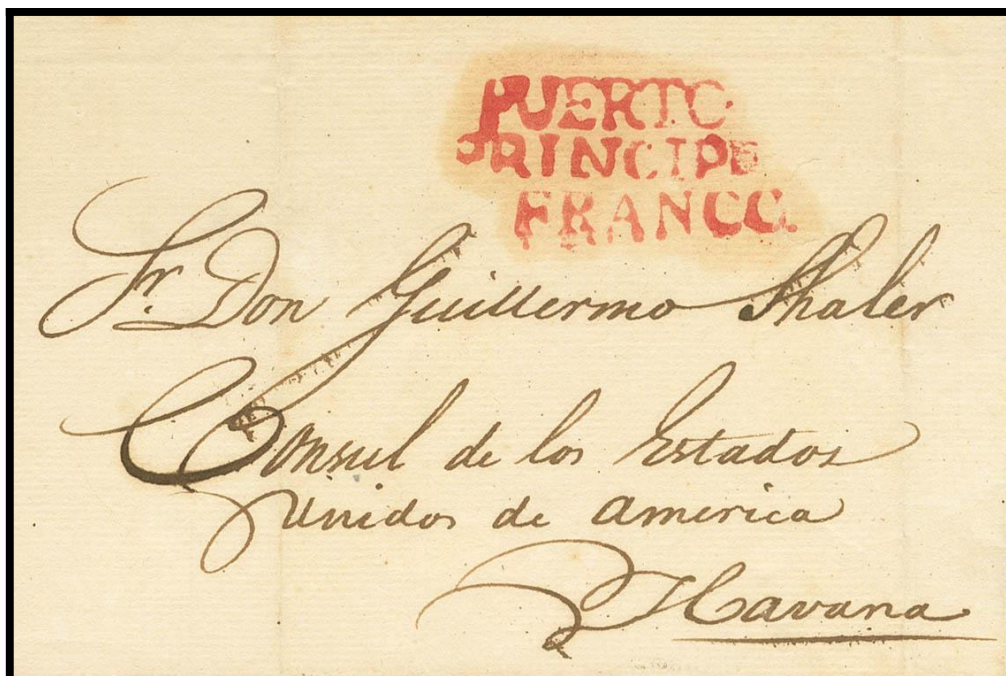 PUERTO
PRINCIPE
FRANCO.
Sr. Don Guillermo Shaler
Consul de los Estados
Unidos de America
Havana